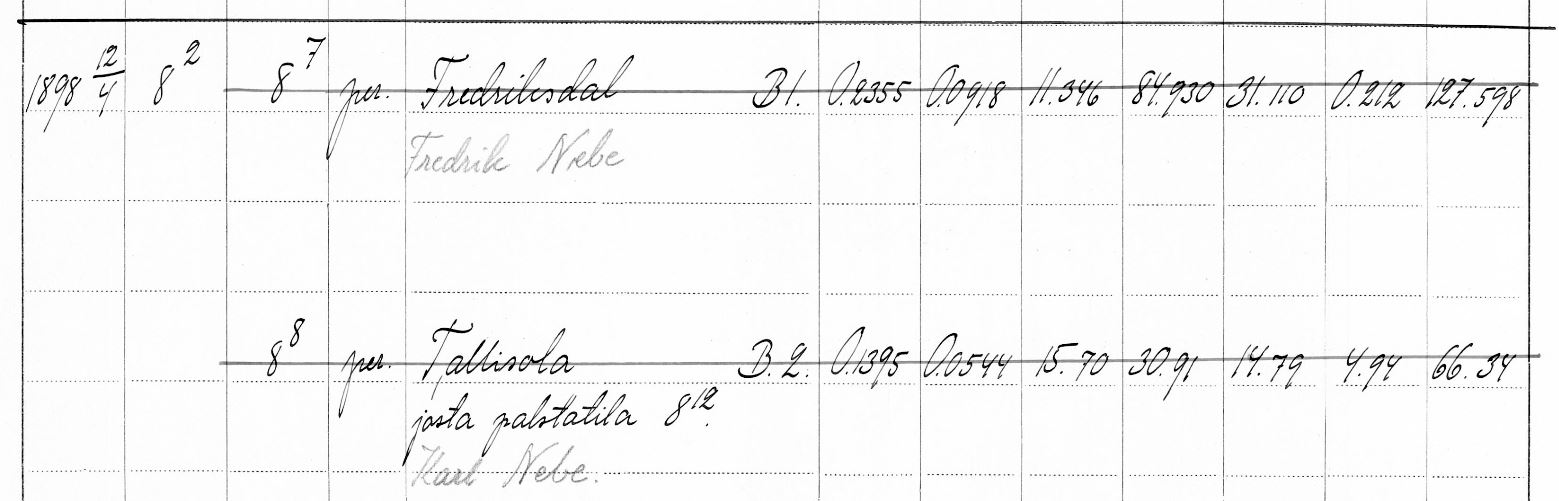 1898 12/4 8² 8⁷ per. Fredriksdal B 1. 0.2355 0.0918 11.346 84.930 31.110 0.212 127.598
Fredrik Nebe
8⁸ per. Tallisola B. 2. 0.1395 0.0544 15.70 30.91 14.79 4.94 66.34
josta palstatila 8¹².
Karl Nebe.